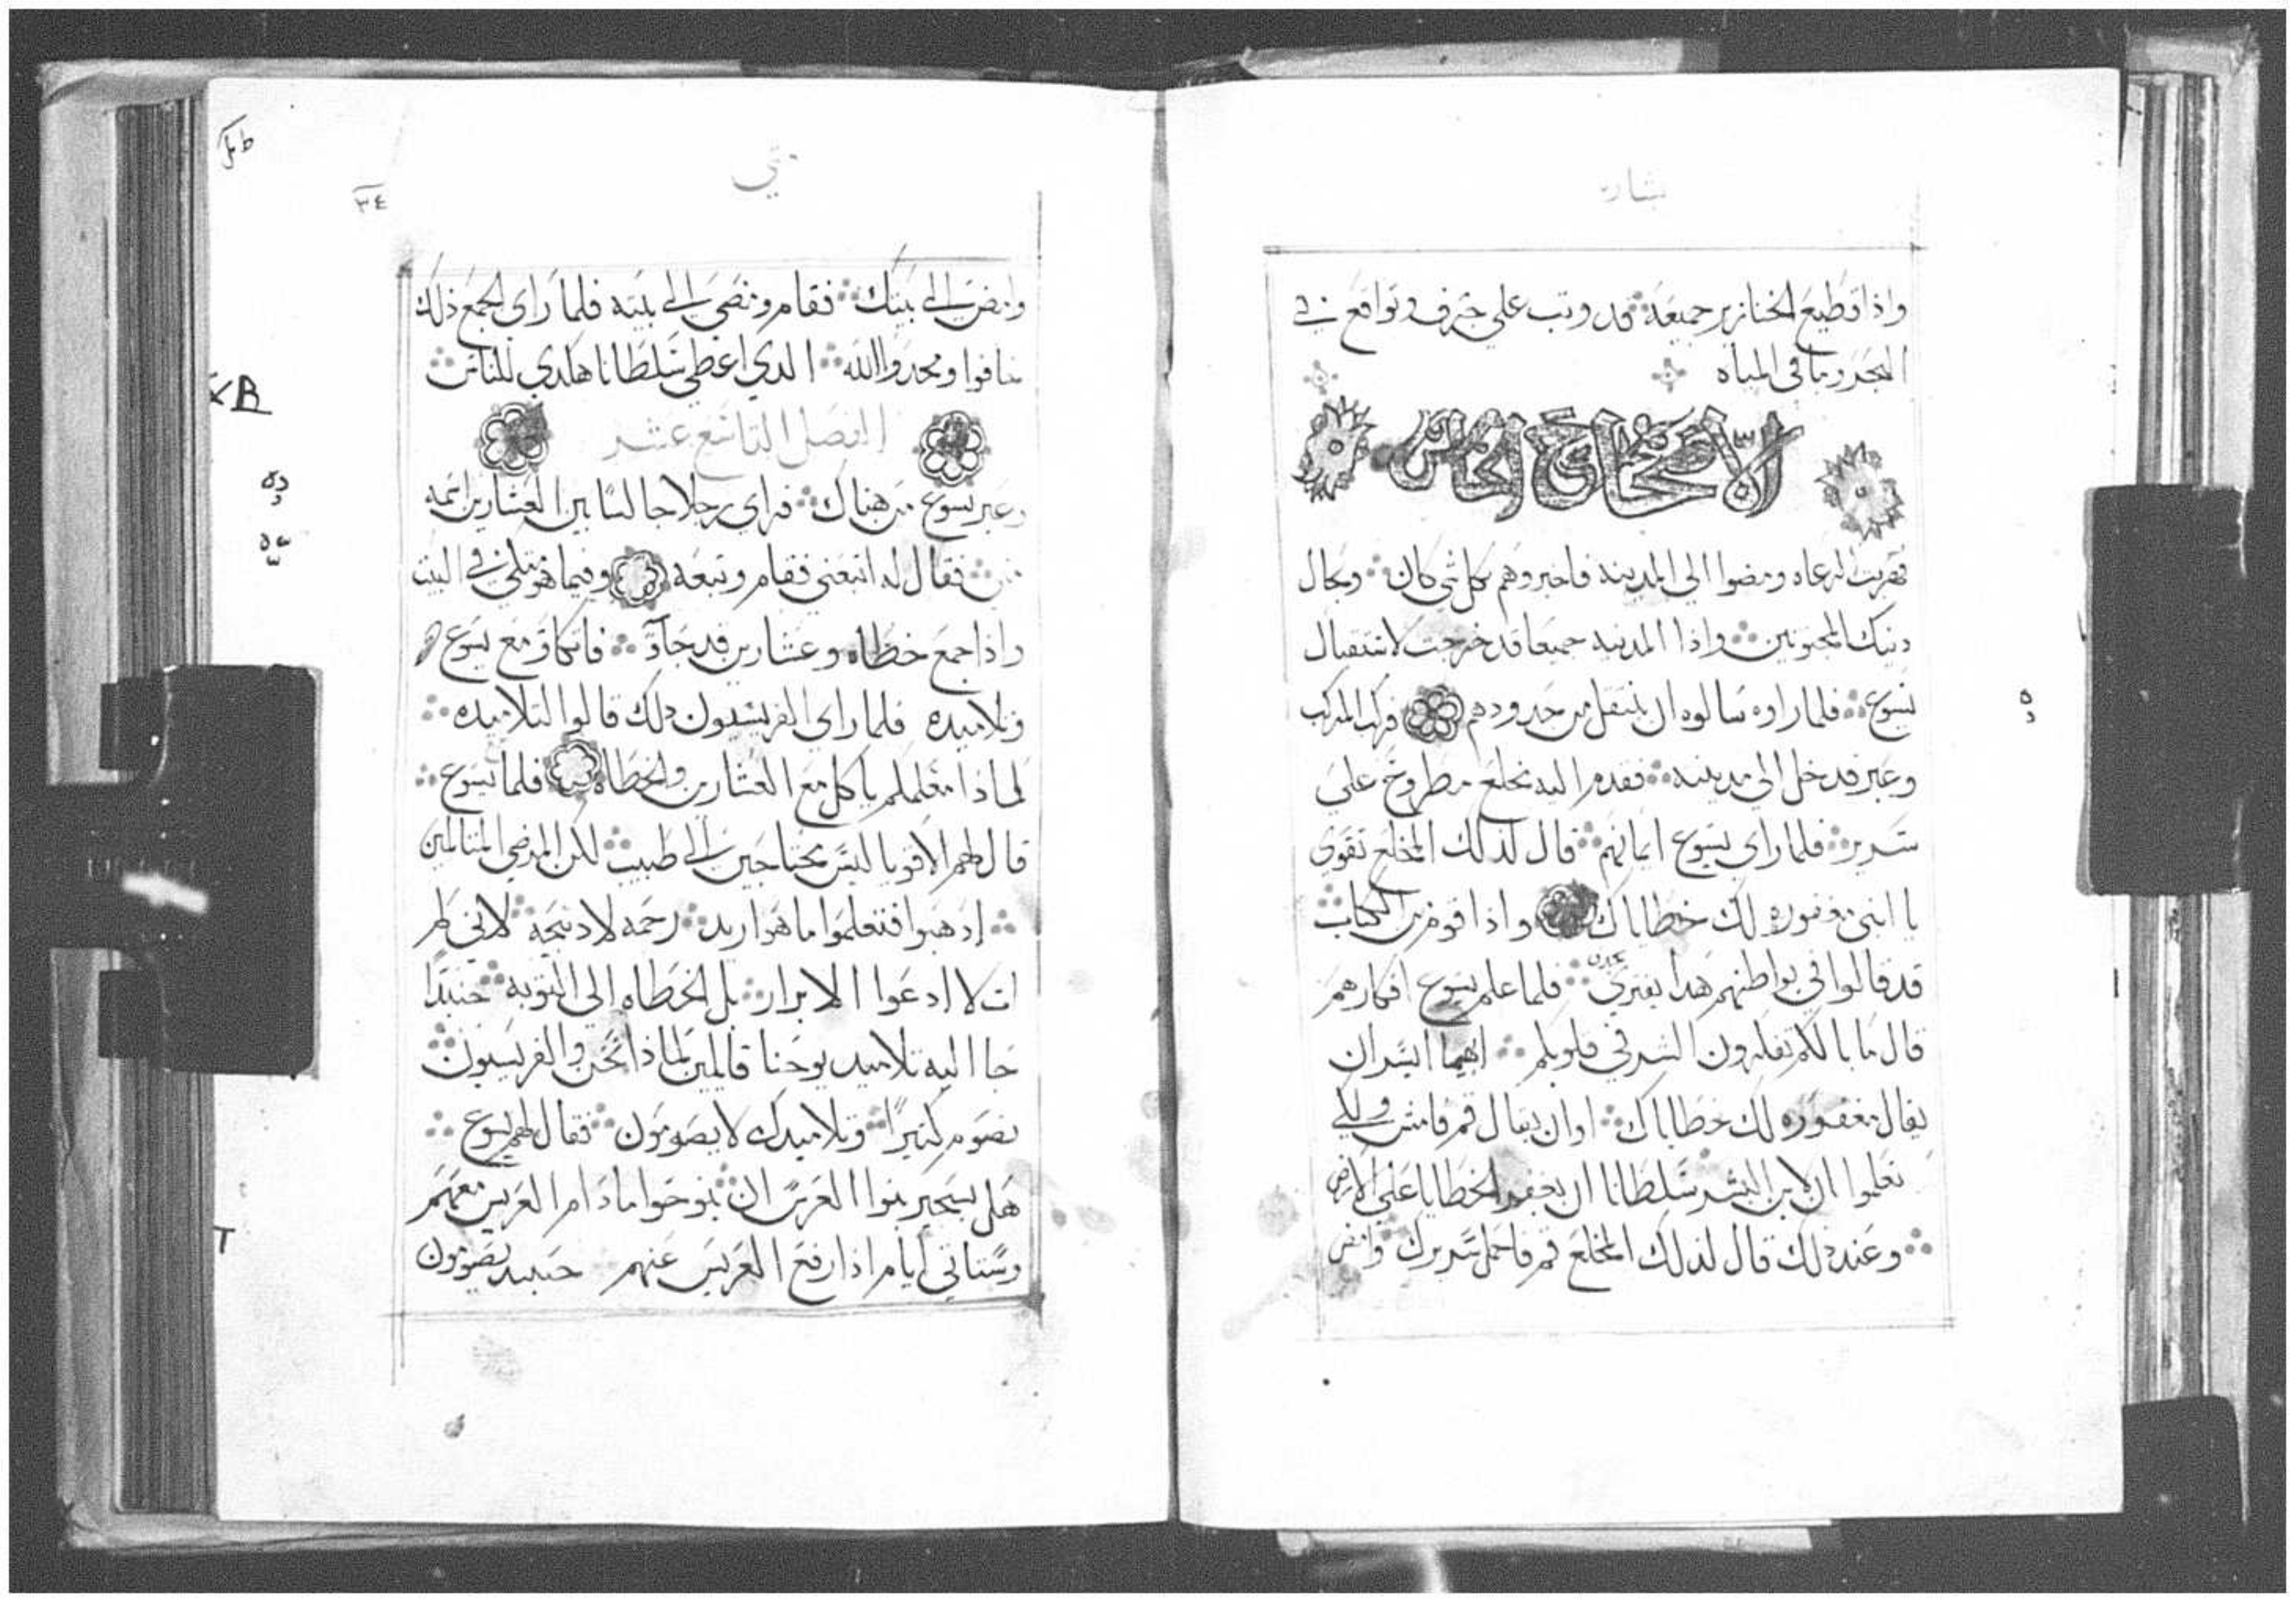 بشاره
واذا قطيع الخنازير جميعه قد وثب علي جرف وتواقع في
البحر وباقي المياه
الاصحاح الخامس
فهربت الرعاه ومضوا الي المدينه فاخبروهم بكل شي كان وبحال
دنيك المجنونين واذا المدينه جميعا قد خرجت لاستقبال
يسوع فلما راوه سالوه ان ينتقل من حدودهم فركب المركب
وعبر فدخل الي مدينته فقدم اليه مخلع مطروح علي
سرير فلما راي يسوع ايمانهم قال لذلك المخلع تقوي
يا ابني مغفوره لك خطاياك واذا قوم من الكتاب
قد قالوا في بواطنهم هدا يفتري فلما علم يسوع افكارهم
قال ما بالكم تفكرون الشر في قلوبكم ايهما ايسر ان
يقال مغفوره لك خطاياك او ان يقال قم فامش ولكي
تعلموا ان لابن البشر سلطانا ان يغفر الخطايا علي الارض
وعند ذلك قال لذلك المخلع قم فاحمل سريرك وامض
متي
٣٤
وامض الي بيتك فقام ومضي الي بيته فلما راي الجمع ذلك
خافوا ومجدوا الله الدي اعطي سلطانا هكدي للناس
الفصل التاسع عشر
وعبر يسوع من هناك فراي رجلا جالسا بين العشارين اسمه
متي فقال له اتبعني فقام وتبعه وفيما هو متكي في البيت
واذا جمع خطاه وعشارين قد جآوَّ فاتكاوَ مع يسوع
وتلاميده فلما راي الفريسيون دلك قالوا لتلاميده
لماذا معلمكم ياكل مع العشارين والخطاه فلما يسوع
قال لهم الاقويا ليس محتاجين الي طبيب لكن المرضي المتالمين
ادهبوا فتعلموا ما هو اريد رحمه لا دبيحه لاني لم
ات لا ادعوا الابرار بل الخطاه الي التوبه حنيدًا
جا اليه تلاميد يوحنا قالمين لماذا نحن والفريسيون
نصوم كثيرًا وتلاميدك لا يصومون فقال لهم يسوع
هل يستجير بنوا العرس ان ينوحوا ما دام العريس معهم
وستاتي ايام اذا رفع العريس عنهم حينيد يصومون